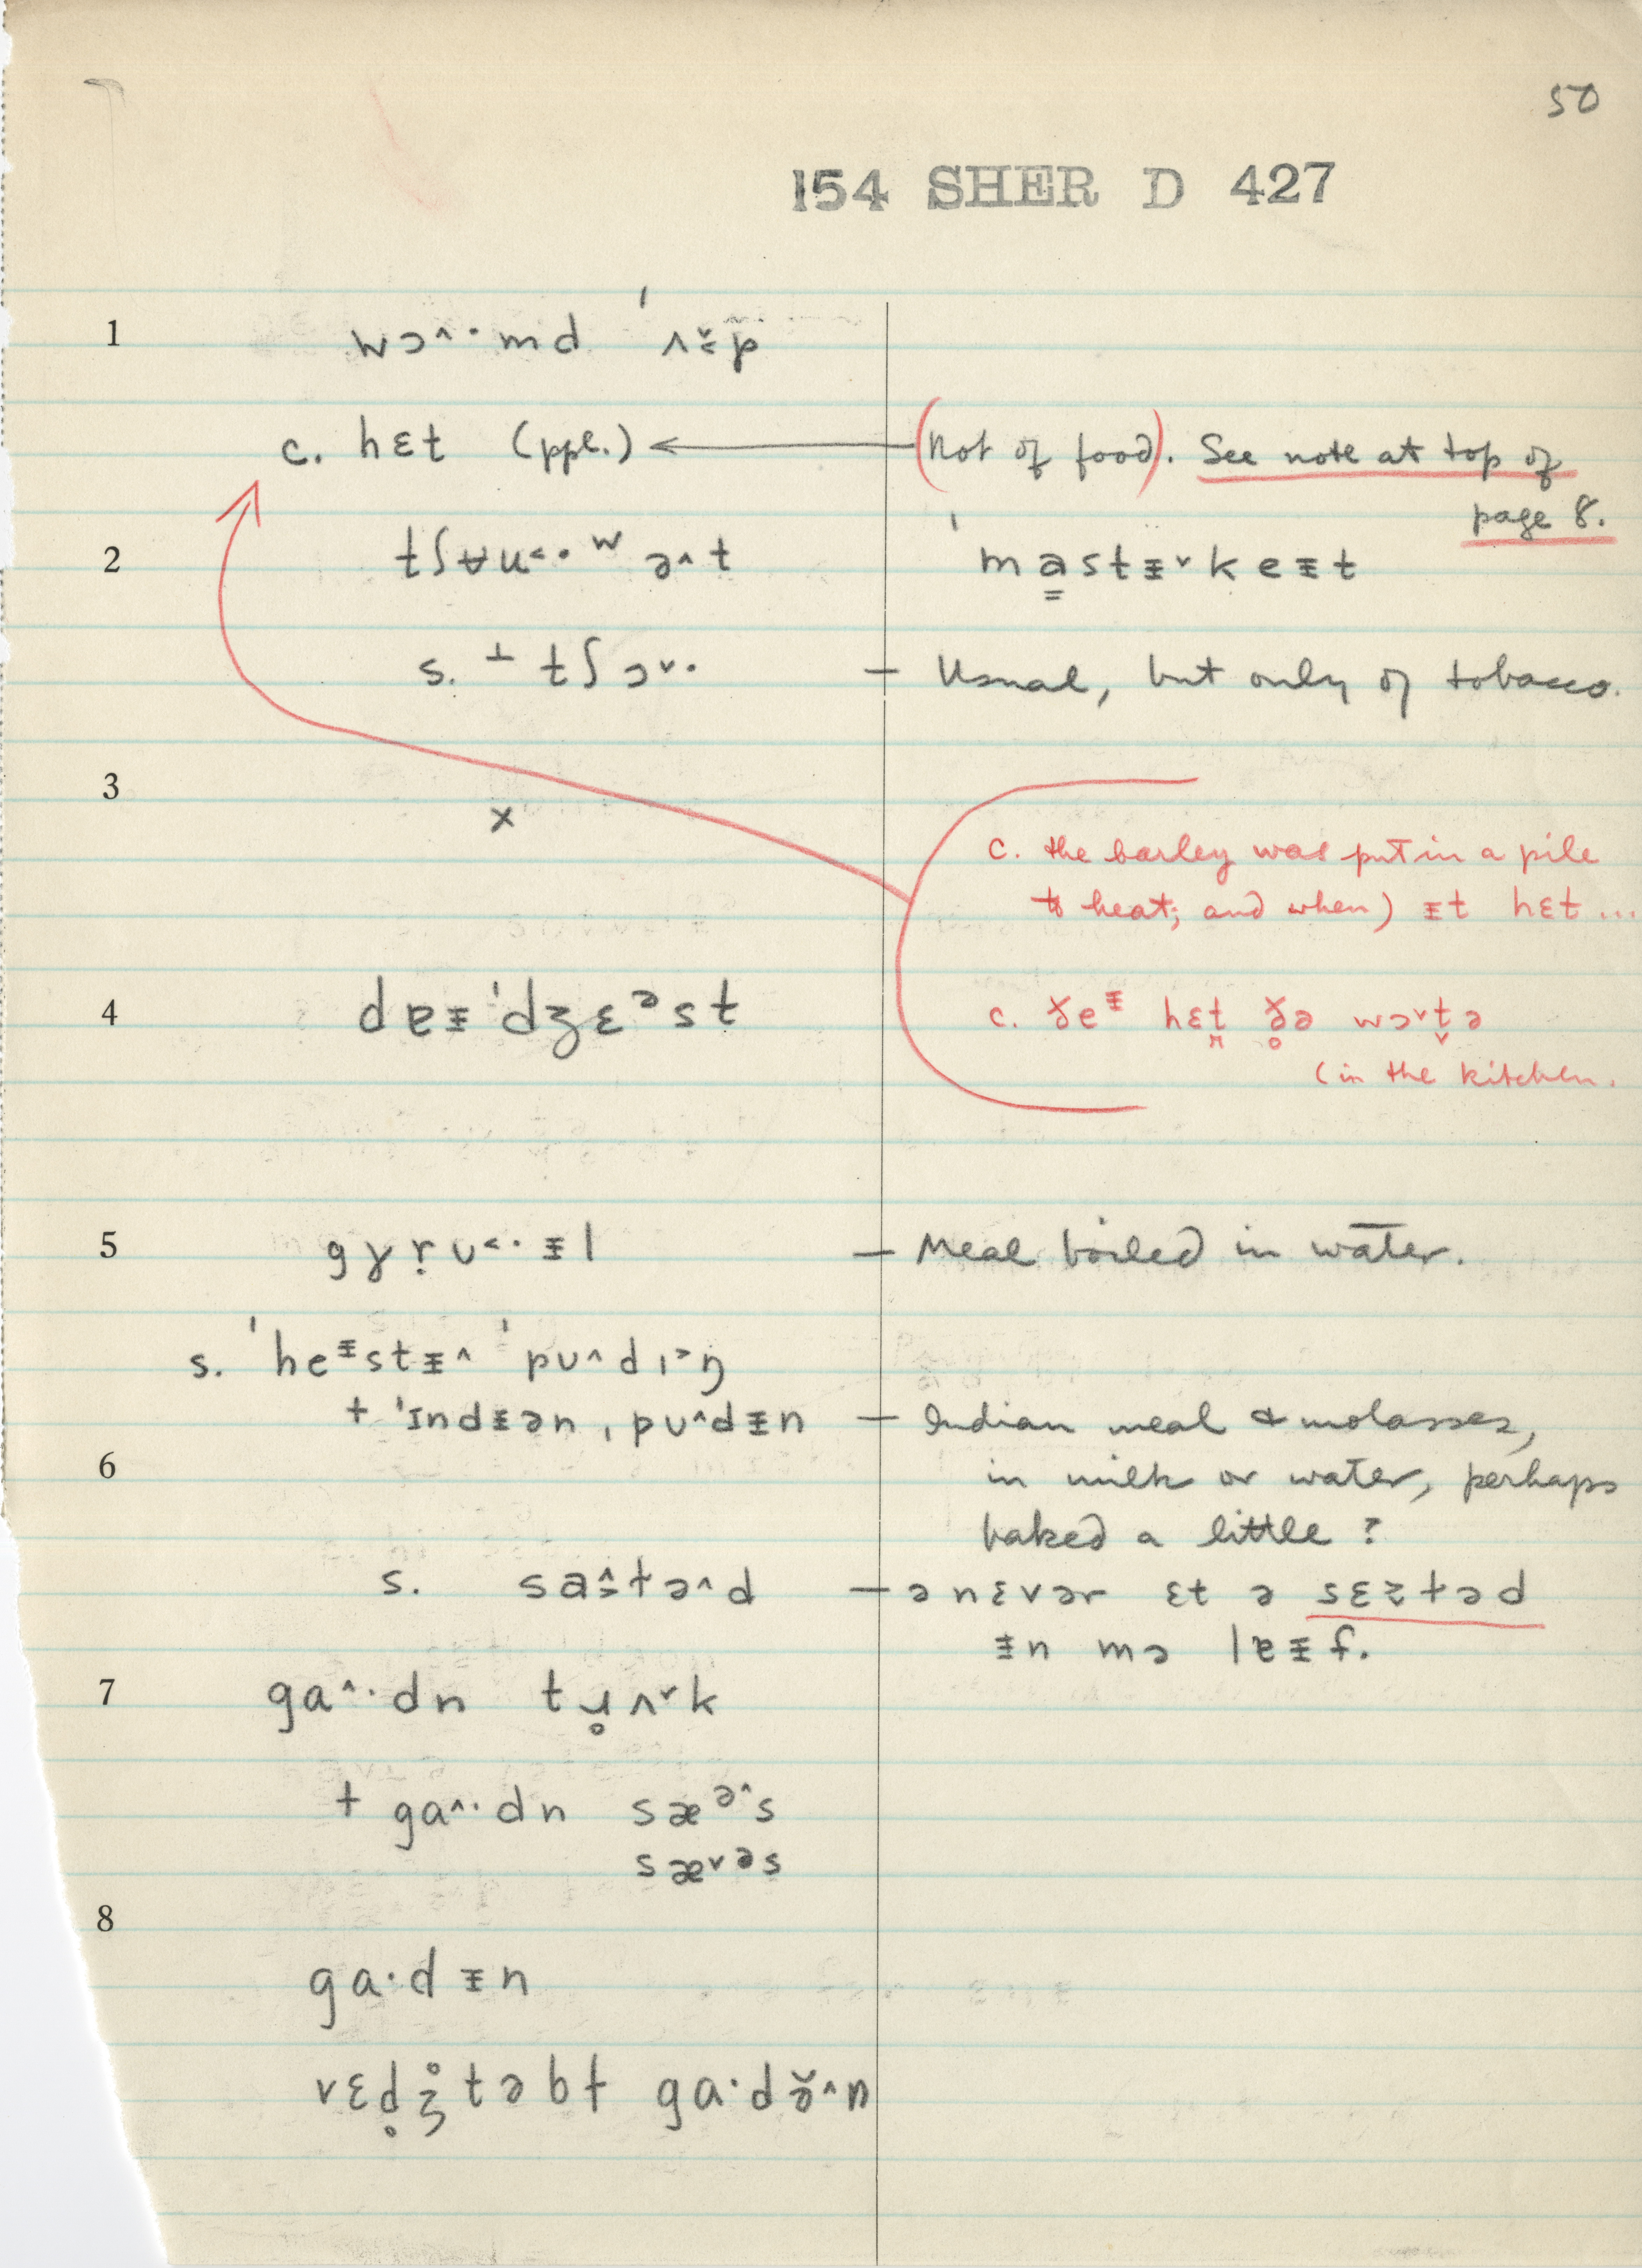 50
154 SHER D 427
1 wɔ^·md ˈʌp
c. hɛt (ppl.) ← (Not of food). See note at top of
page 8.
2 tʃʉu<·ʷə^t ˈmastᵻ˅keᵻt
s. ⊥ tʃɔ˅· – Usual, but only of tobacco.
3
x
c. the barley was put in a pile
to heat; and when) ᵻt hɛt ...
4 dɐᵻˈdʒɛᵊst
c. ɣeᵻ hɛt ɣə wɔ˅tə
(in the kitchen.
5 gɣrʊ<·ᵻl – Meal boiled in water.
s. ˈheᵻstᵻ^ ˈpʊ^dɪ>ŋ
+ ˈɪndᵻən ˌpʊ^dᵻn – Indian meal & molasses,
6 in milk or water, perhaps
baked a little?
s. sastə^d – ə nɛvər ɛt ə sɛztəd
ᵻn mɔ lɐᵻf.
7 ga^·dn tɹʌ˅k
+ ga^·dn sæᵊ^s
sæ˅əs
8
ga·dᵻn
vɛdʒtəbɫ ga·də̆^n